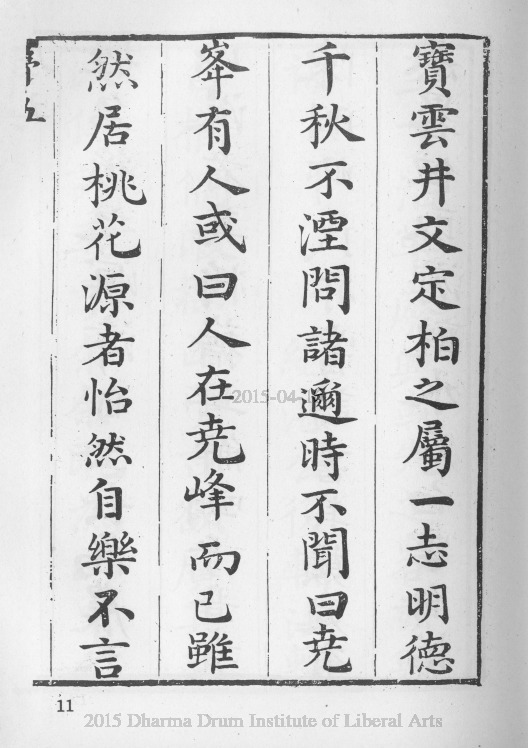 寶雲井文定柏之屬一志明德
千秋不湮問諸邇時不聞曰尭
峯有人或曰人在尭峰而已雖
然居桃花源者怡然自樂不言
11
2015-04-
2015 Dharma Drum Institute of Liberal Arts